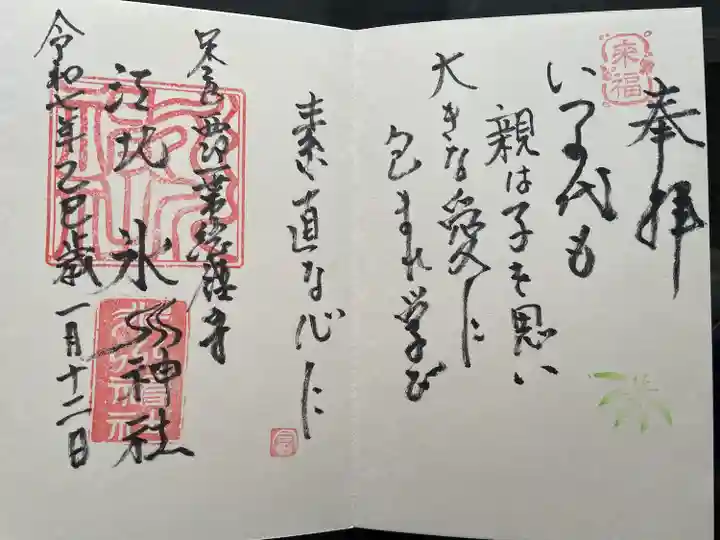 奉拝
来福
いつの代も
親は子を思い
大きな愛に
包まれ学び
素直な心に
江北氷川神社
令和七年乙巳歳一月十二日